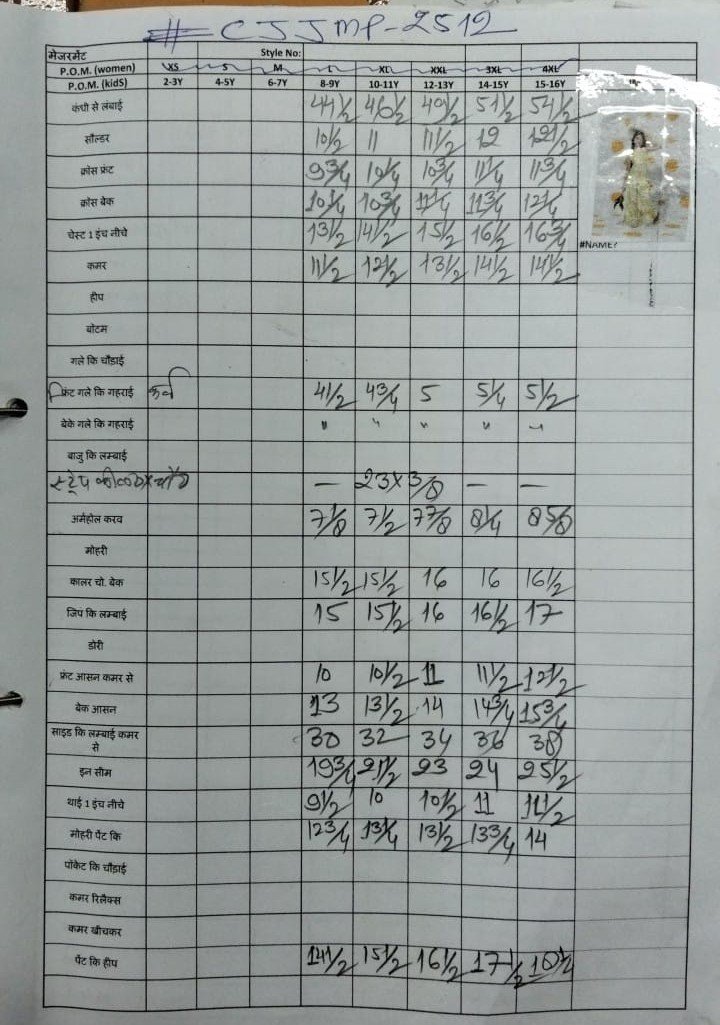 # CJJMP-2512
मेजरमेंट Style No:
P.O.M. (women) XS S M L XL XXL 3XL 4XL
P.O.M. (kidS) 2-3Y 4-5Y 6-7Y 8-9Y 10-11Y 12-13Y 14-15Y 15-16Y
कंधी से लंबाई 44 1/2 46 1/2 49 1/2 51 1/2 54 1/2
सौल्डर 10 1/2 11 11 1/2 12 12 1/2
क्रोस फ्रंट 9 3/4 10 1/4 10 3/4 11 1/4 11 3/4
क्रोस बेक 10 1/4 10 3/4 11 1/4 11 3/4 12 1/4
चेस्ट 1 इंच नीचे 13 1/2 14 1/2 15 1/2 16 1/2 16 3/4
#NAME?
कमर 11 1/2 12 1/2 13 1/2 14 1/2 14 1/2
हीप
बोटम
गले कि चौड़ाई
फ्रिंट गले कि गहराई कर्व 4 1/2 4 3/4 5 5 1/4 5 1/2
बेके गले कि गहराई " " " " "
बाजु कि लम्बाई
स्ट्रेप — 23 x 3/8 — —
अर्महोल करव 7 1/8 7 1/2 7 7/8 8 1/4 8 5/8
मोहरी
कालर चो. बेक 15 1/2 15 1/2 16 16 16 1/2
जिप कि लम्बाई 15 15 1/2 16 16 1/2 17
डोरी
फ्रंट आसन कमर से 10 10 1/2 11 11 1/2 12 1/2
बेक आसन 13 13 1/2 14 14 3/4 15 3/4
साइड कि लम्बाई कमर
से 30 32 34 36 38
इन सीम 19 3/4 21 1/2 23 24 25 1/2
थाई 1 इंच नीचे 9 1/2 10 10 1/2 11 11 1/2
मोहरी पैंट कि 12 3/4 13 1/4 13 1/2 13 3/4 14
पॉकेट कि चौड़ाई
कमर रिलैक्स
कमर खीचकर
पैंट कि हीप 14 1/2 15 1/2 16 1/2 17 1/2 18 1/2